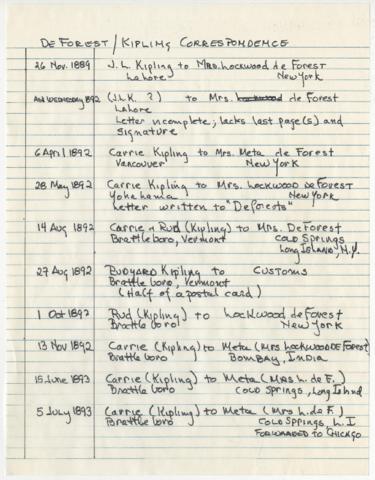 DE FOREST / KIPLING CORRESPONDENCE
26 Nov. 1889 J. L. Kipling to MRS. Lockwood de Forest
Lahore New York
Ash Wednesday 1892 (J.L.K. ?) to Mrs. Lockwood de Forest
Lahore
Letter incomplete; lacks last page(s) and
signature
6 April 1892 Carrie Kipling to Mrs. Meta de Forest
Vancouver New York
28 May 1892 Carrie Kipling to Mrs. Lockwood de Forest
Yokahama New York
Letter written to "Deforests"
14 Aug 1892 Carrie + Rud (Kipling) to Mrs. DeForest
Brattleboro, Vermont COLD SPRINGS
Long ISLAND, N.Y.
27 Aug 1892 RUDYARD Kipling to CUSTOMS
Brattleboro, Vermont
(Half of a postal card)
1 Oct 1892 Rud (Kipling) to Lockwood de Forest
Brattleboro New York
13 Nov 1892 Carrie (Kipling) to Meta (MRS LOCKWOOD DE FOREST)
Brattleboro BOMBAY, INDIA
15 June 1893 Carrie (Kipling) to Meta (Mrs L. de F.)
Brattleboro COLD SPRINGS, Long Island
5 July 1893 Carrie (Kipling) to Meta (Mrs L. de F.)
Brattleboro COLD SPRINGS L. I
FORWARDED to CHICAGO